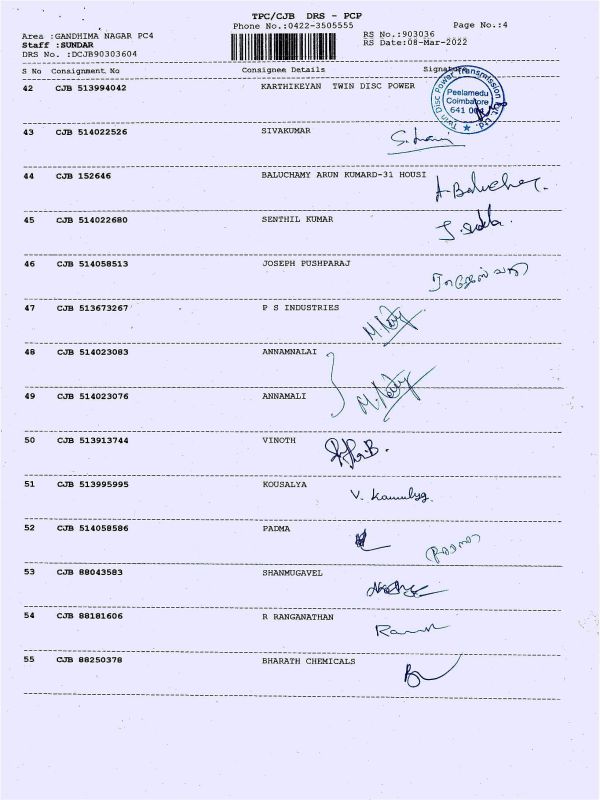 TPC/CJB DRS - PCP
Phone No.:0422-3505555 Page No.:4
Area :GANDHIMA NAGAR PC4 RS No.:903036
Staff :SUNDAR RS Date:08-Mar-2022
DRS No. :DCJB90303604
S No Consignment No Consignee Details Signature
42 CJB 513994042 KARTHIKEYAN TWIN DISC POWER
Twin Disc Power Transmission Pvt. Ltd.
Peelamedu
Coimbatore
641 004
43 CJB 514022526 SIVAKUMAR
44 CJB 152646 BALUCHAMY ARUN KUMARD-31 HOUSI
A Baluchamy.
45 CJB 514022680 SENTHIL KUMAR
46 CJB 514058513 JOSEPH PUSHPARAJ
47 CJB 513673267 P S INDUSTRIES
48 CJB 514023083 ANNAMNALAI
49 CJB 514023076 ANNAMALI
50 CJB 513913744 VINOTH
51 CJB 513995995 KOUSALYA
52 CJB 514058586 PADMA
53 CJB 88043583 SHANMUGAVEL
54 CJB 88181606 R RANGANATHAN
55 CJB 88250378 BHARATH CHEMICALS